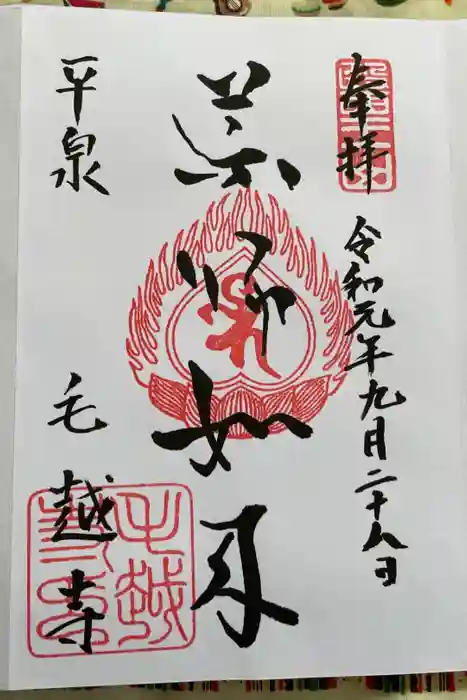 奉拝
令和元年九月二十八日
薬師如来
平泉
毛越寺